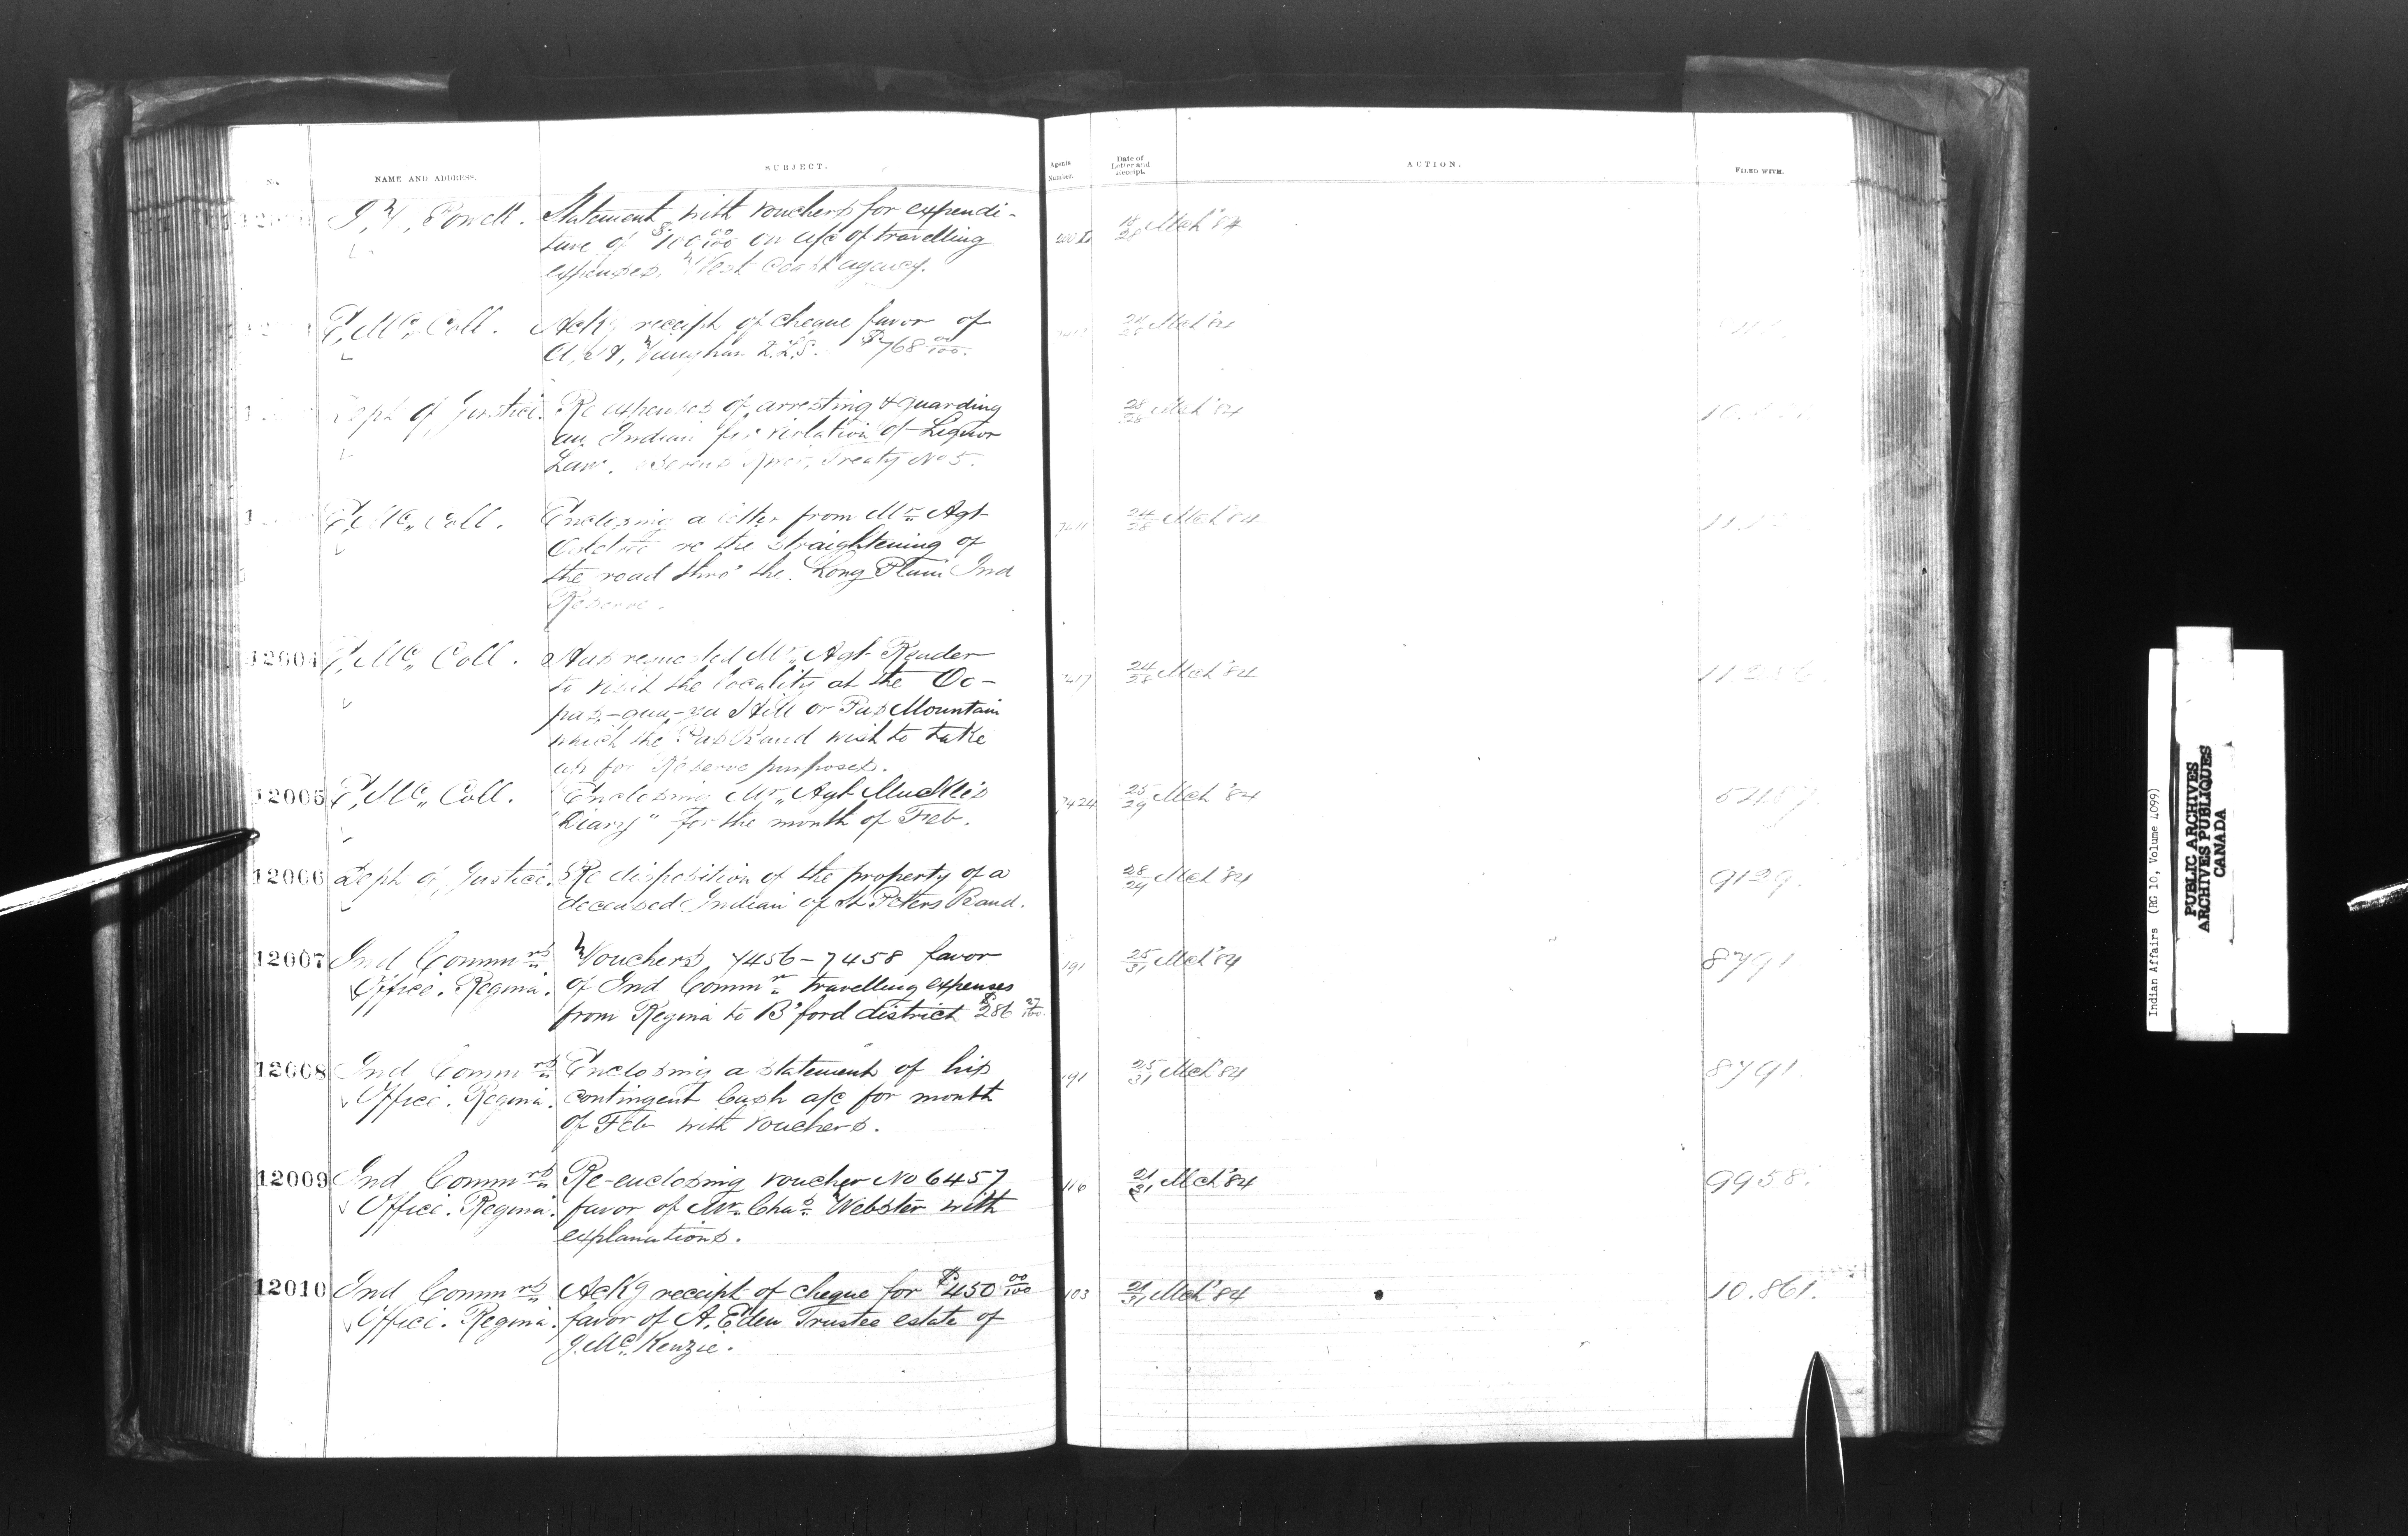 No. NAME AND ADDRESS. SUBJECT. Agents Number. Date of Letter and Receipt. ACTION. FILED WITH.
I. W. Powell. Statement with vouchers for expendi- 18/28 Mch '84
ture of $100 00/100 on a/c of travelling
expenses. West Coast agency.
E. Mc. Coll. Ackg receipt of cheque favor of 24/28 Mch '84
A. W. Vaughan D.L.S. $768 00/100.
Dept of Justice. Re expenses of arresting & guarding 28/28 Mch '84
an Indian for violation of Liquor
Law. Berens River, Treaty No 5.
E. Mc. Coll. Enclosing a letter from Mr. Agt 24/28 Mch '84
re the straightening of
the road thro' the Long Plain Ind
Reserve.
12004 E. Mc. Coll. Has requested Mr. Agt Reader 7417 24/28 Mch '84
to visit the locality at the Oo-
pas-qua-ya Hill or Pas Mountain
which the Pas Band wish to take
up for Reserve purposes.
12005 E. Mc. Coll. Enclosing Mr. Agt Muckle's 7424 25/29 Mch '84
"Diary" for the month of Feb.
12006 Dept of Justice. Re disposition of the property of a 28/29 Mch '84 9129.
deceased Indian of St. Peters Band.
12007 Ind Commrs Vouchers 7456-7458 favor 191 25/31 Mch '84 8791
Office. Regina. of Ind Commr travelling expenses
from Regina to B'ford district $286 27/100.
12008 Ind Commrs Enclosing a statement of his 191 25/31 Mch '84 8791.
Office. Regina. contingent Cash a/c for month
of Feb with vouchers.
12009 Ind Commrs Re-enclosing voucher No 6457 116 21/31 Mch '84 9958.
Office. Regina. favor of Mr. Chas. Webster with
explanations.
12010 Ind Commrs Ackg receipt of cheque for $450 00/100 103 21/31 Mch '84 10.861.
Office. Regina. favor of A. Eden Trustee estate of
J. Mc. Kenzie.
Indian Affairs (RG 10, Volume 4099)
PUBLIC ARCHIVES
ARCHIVES PUBLIQUES
CANADA